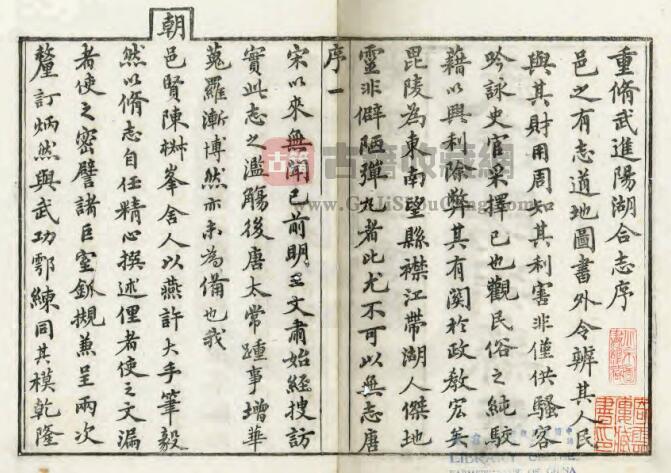 重脩武進陽湖合志序
邑之有志道地圖書外令辨其人民
與其財用周知其利害非僅供騷客
吟詠史官采擇已也觀民俗之純駮
藉以興利除弊其有関於政敎宏矣
毘陵為東南望縣襟江帶湖人傑地
靈非僻陋彈丸者比尤不可以無志唐
序 一
宋以來無聞已前明王文肅始經搜訪
實此志之濫觴後唐太常踵事增華
蒐羅漸博然亦未為備也我
朝
邑賢陳椒峯舍人以燕許大手筆毅
然以脩志自任精心撰述俚者使之文漏
者使之密譬諸臣室釽摫兼呈兩次
釐訂炳然與武功鄠練同其模乾隆
古籍
古籍收藏網
www.GuJiShouCang.com
LIBRARY